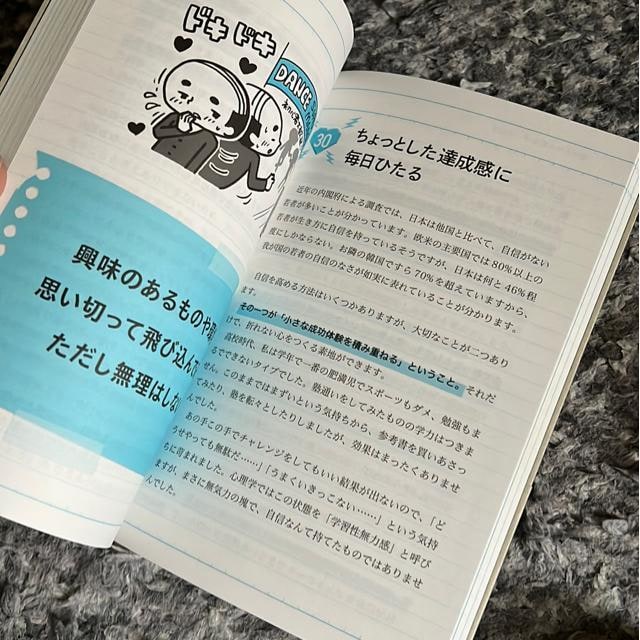 ドキドキ
DANCE
興味のあるものや
思い切って飛び込んで
ただし無理はしない
30
ちょっとした達成感に
毎日ひたる
近年の内閣府による調査では、日本は他国と比べて、自信がない
若者が多いことが分かっています。欧米の主要国では80%以上の
若者が生き方に自信を持っているそうですが、日本は何と46%程
度にしかならない。お隣の韓国ですら70%を超えていますから、
我が国の若者の自信のなさが如実に表れていることが分かります。
自信を高める方法はいくつかありますが、大切なことが二つあり
ます。
その一つが「小さな成功体験を積み重ねる」ということ。それだ
けで、折れない心をつくる素地ができます。
高校時代、私は学年で一番の肥満児でスポーツもダメ、勉強もま
るでできないタイプでした。塾通いをしてみたものの学力はつきま
せん。このままではまずいという気持ちから、参考書を買いあさっ
てみたり、塾を転々としたりしましたが、効果はまったくありませ
んでした。
あの手この手でチャレンジをしてもいい結果が出ないので、「ど
うせやっても無駄だ……」「うまくいきっこない……」という気持
ちに苛まれました。心理学ではこの状態を「学習性無力感」と呼び
ますが、まさに無気力の塊で、自信なんて持てたものではありませ
んでした。